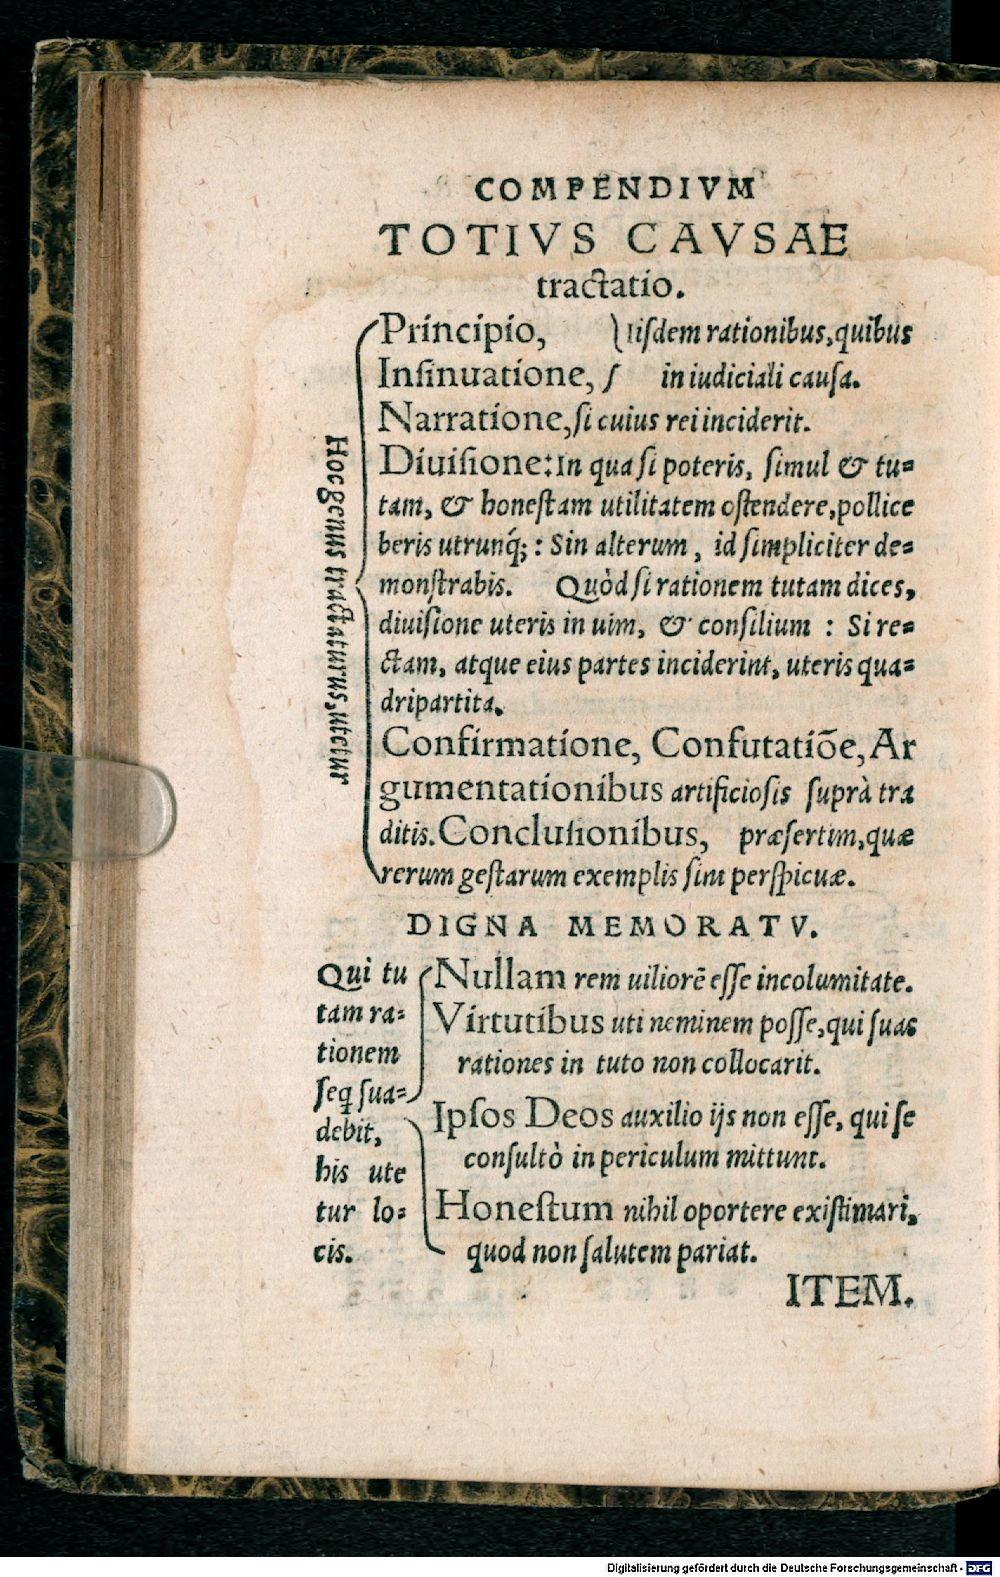 COMPENDIVM
TOTIVS CAVSAE
tractatio.
Hoc genus tractaturus, utetur
Principio, Iiſdem rationibus, quibus
Inſinuatione, in iudiciali cauſa.
Narratione, ſi cuius rei inciderit.
Diuiſione: In qua ſi poteris, ſimul & tu-
tam, & honeſtam utilitatem oſtendere, pollice
beris utrunq́;: Sin alterum, id ſimpliciter de-
monſtrabis. Quòd ſi rationem tutam dices,
diuiſione uteris in uim, & conſilium : Si re-
ctam, atque eius partes inciderint, uteris qua-
dripartita.
Confirmatione, Confutatiōe, Ar
gumentationibus artificioſis ſuprà tra
ditis. Concluſionibus, præſertim, quæ
rerum geſtarum exemplis ſint perſpicuæ.
DIGNA MEMORATV.
Qui tu
tam ra-
tionem
ſeq ſua-
debit,
his ute
tur lo-
cis.
Nullam rem uiliorē eſſe incolumitate.
Virtutibus uti neminem poſſe, qui ſuas
rationes in tuto non collocarit.
Ipſos Deos auxilio ijs non eſſe, qui ſe
conſultò in periculum mittunt.
Honeſtum nihil oportere exiſtimari,
quod non ſalutem pariat.
ITEM.
Digitalisierung gefördert durch die Deutsche Forschungsgemeinschaft - DFG